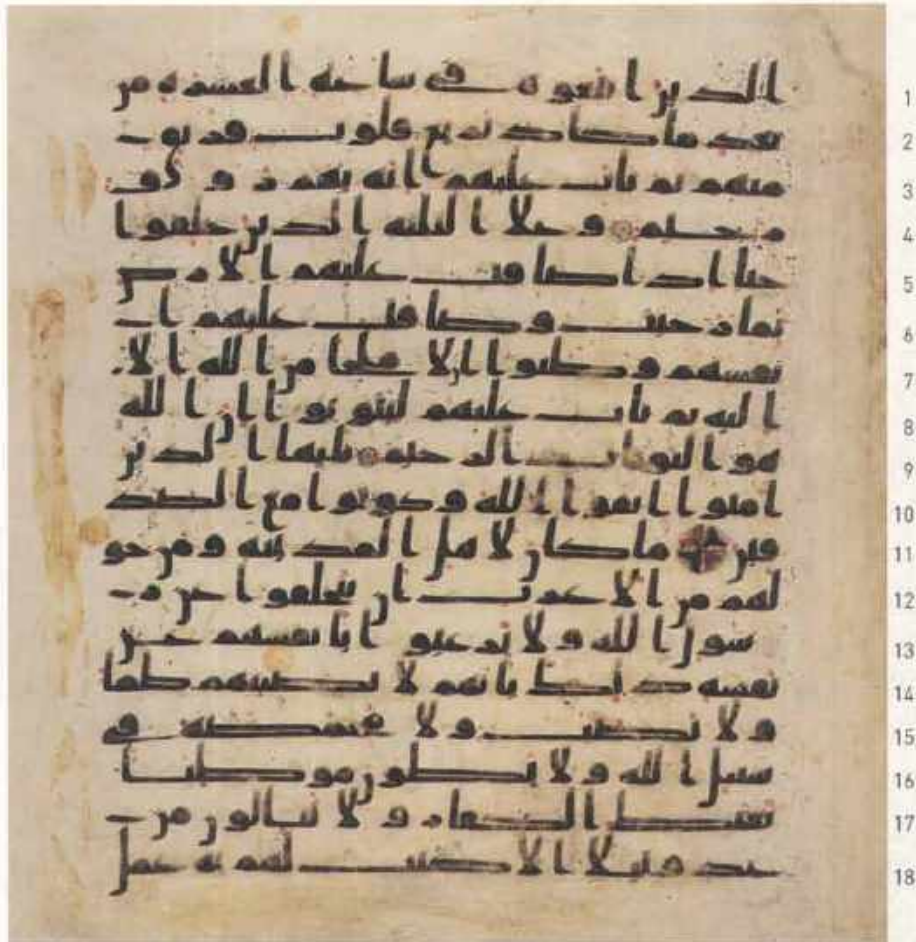 1 الذين اتبعوه في ساعة العسرة من
2 بعد ما كاد تزيغ قلوب فريق
3 منهم ثم تاب عليهم انه بهم روف
4 رحيم وعلى الثلثة الذين خلفوا
5 حتى اذا ضاقت عليهم الارض
6 بما رحبت وضاقت عليهم ا
7 نفسهم وظنوا ان لا ملجا من الله الا
8 اليه ثم تاب عليهم ليتوبوا ان الله
9 هو التواب الرحيم يايها الذين
10 امنوا اتقوا الله وكونوا مع الصد
11 قين ما كان لاهل المدينة ومن حو
12 لهم من الاعراب ان يتخلفوا عن ر
13 سول الله ولا يرغبوا بانفسهم عن
14 نفسه ذلك بانهم لا يصيبهم ظما
15 ولا نصب ولا مخمصة في
16 سبيل الله ولا يطون موطيا
17 يغيظ الكفار ولا ينالون من
18 عدو نيلا الا كتب لهم به عمل